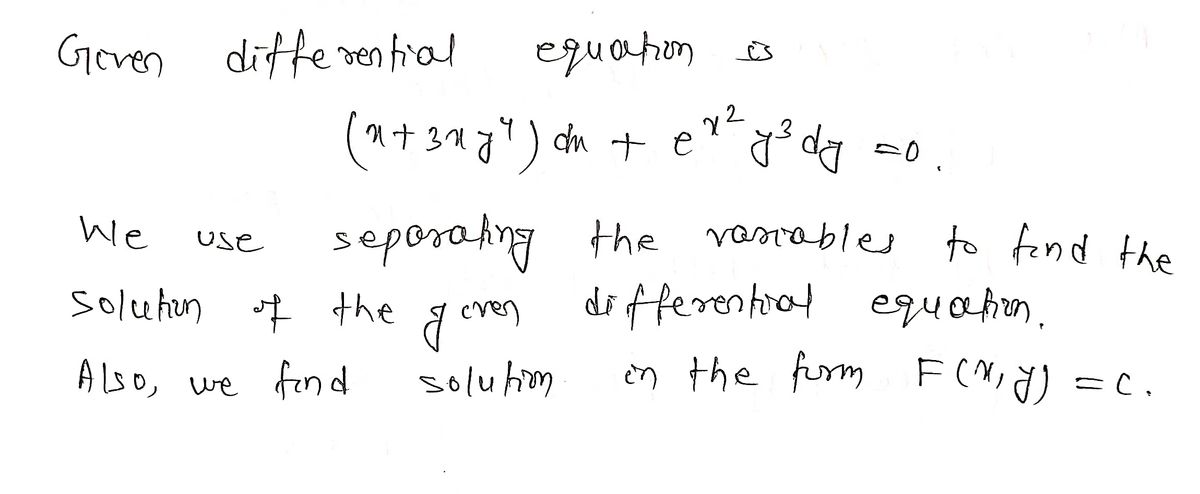 Given differential equation is
(x + 3xy⁴) dx + e^{x²} y³ dy = 0.
We use separating the variables to find the
solution of the given differential equation.
Also, we find solution in the form F(x, y) = c.